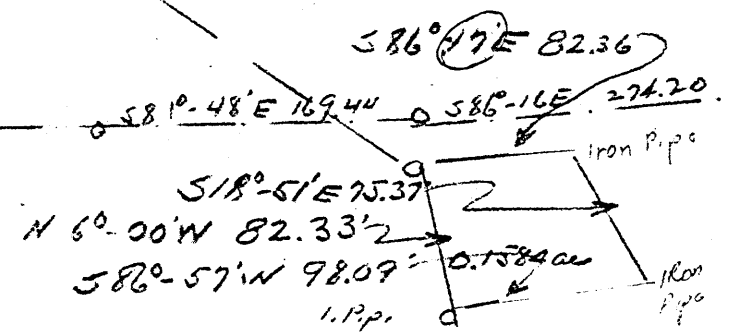 S 86° 17'E 82.36
S81°-48'E 169.44 S86°-16E. 274.20.
Iron Pipe
S18°-51'E 75.37'
N 6°-00'W 82.33'
S86°-57'W 98.09' 0.1584 ac
Iron
Pipe
I.Pp.